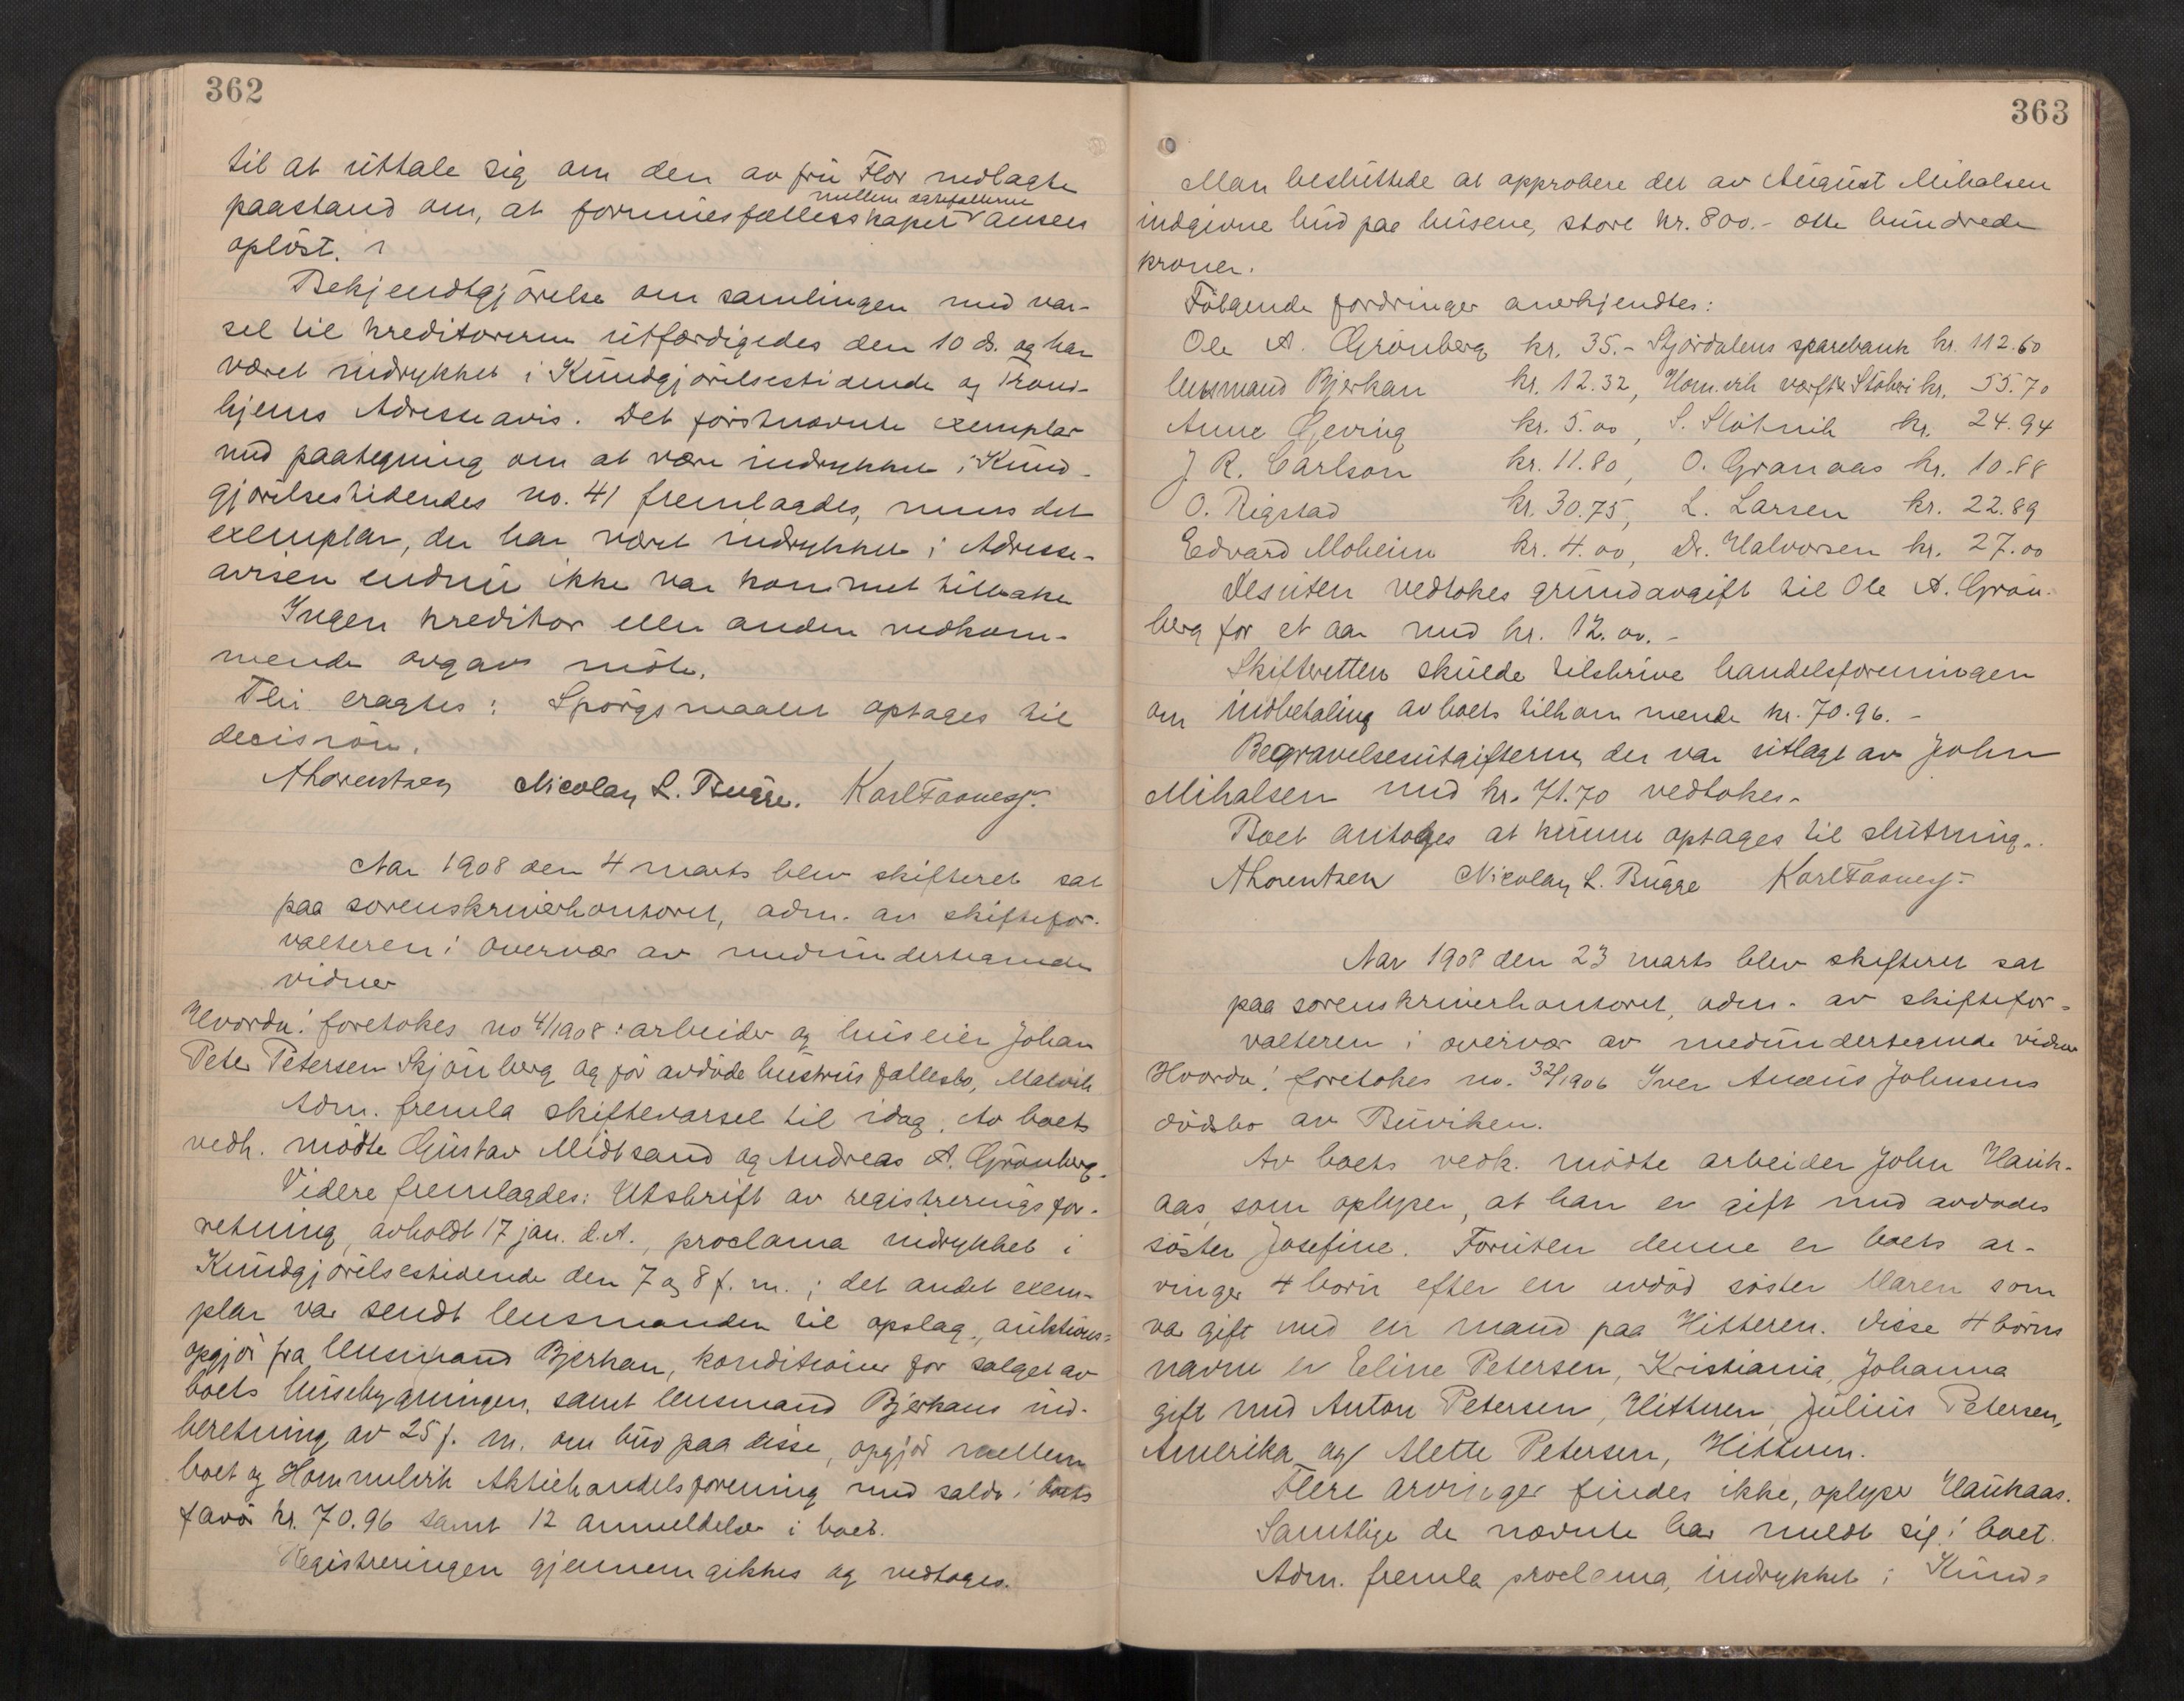 362
til at uttale sig om den av fru Flor nedlagte
mellem ægtefællerne
paastand om, at formuesfællesskapet ansees
opløst.
Bekjendtgjørelse om samlingen med var-
sel til kreditorerne utfærdigedes den 10 ds. og har
været indrykket i Kundgjørelsestidende og Trond-
hjems Adresseavis. Det førstnævnte exemplar
med paategning om at være indrykket i Kund-
gjørelsestidendes no. 41 fremlagdes, mens det
exemplar, der har været indrykket i Adresse-
avisen endnu ikke var kommet tilbake
Ingen kreditor eller anden vedkom-
mende avgav møte.
Thi eragtes: Spørgsmaalet optages til
decision.
ALorentzen Nicolay L. Bugge. Karl Faanes jr.
Aar 1908 den 4 marts blev skifteret sat
paa sorenskriverkontoret, adm. av skiftefor-
valteren i overvær av medundertegnede
vidner
Hvorda! foretokes no 4/1908: arbeider og huseier Johan
Peter Petersen Skjønberg og før avdøde hustrus fællesbo, Malvik
Adm. fremla skiftevarsel til idag. Av boets
vedk. mødte Gustav Midtsand og Andreas A. Grønberg.
Videre fremlagdes: Utskrift av registreringsfor-
retning, avholdt 17 jan. d.A., proclama indrykket i
Kundgjørelsestidende den 7 og 8 f. m.; det andet exem-
plar var sendt lensmanden til opslag, auktions-
opgjør fra lensmand Bjerkan, konditioner for salget av
boets husebygninger, samt lensmand Bjerkans ind-
beretning av 25 f. m. om bud paa disse, opgjør mellem
boet og Hommelvik Aktiehandelsforening med saldo i boets
favør kr. 70.96 samt 12 anmeldelser i boet.
Registreringen gjennemgikkes og vedtoges.
363
Man besluttede at approbere det av August Mihalsen
indgivne bud paa husene, store kr. 800.- otte hundrede
kroner.
Følgende fordringer anerkjendtes:
Ole A. Grønberg kr. 35.- Stjørdalens sparebank kr. 112.60
lensmand Bjerkan kr. 12.32, Hom.vik værft & Støberi kr. 55.70
Anne Gjeving kr. 5.00, S. Slötnik kr. 24.94
J R. Carlson kr. 11.80, O. Granaas kr. 10.88
O. Rigstad kr. 30.75, L. Larsen kr. 22.89
Edvard Moheim kr. 4.00, Dr. Halvorsen kr. 27.00
Desuten vedtokes grundavgift til Ole A. Grøn-
berg for et aar med kr. 12.00.-
Skifteretten skulde tilskrive handelsforeningen
om indbetaling av boets tilkommende kr. 70.96.-
Begravelsesutgifterne, der var utlagt av John
Mihalsen med kr. 71.70 vedtokes.
Boet antoges at kunne optages til slutning.
ALorentzen Nicolay L. Bugge Karl Faanes jr.
Aar 1908 den 23 marts blev skifteret sat
paa sorenskriverkontoret, adm. av skiftefor-
valteren i overvær av medundertegnede vidner
Hvorda! foretokes no. 32/1906 Iver Anæus Johnsens
dødsbo av Buviken.
Av boets vedk. mødte arbeider John Hauk-
aas, som oplyser, at han er gift med avdødes
søster Josefine. Foruten denne er boets ar-
vinger 4 børn efter en avdød søster Maren som
var gift med en mand paa Hitteren. Disse 4 børns
navne er Eline Petersen, Kristiania, Johanna
gift med Anton Petersen, Hitteren, Julius Petersen,
Amerika og Alette Petersen, Hitteren.
Flere arvinger findes ikke, oplyser Haukaas.
Samtlige de nævnte har meldt sig i boet.
Adm. fremla proclama, indrykket i Kund-